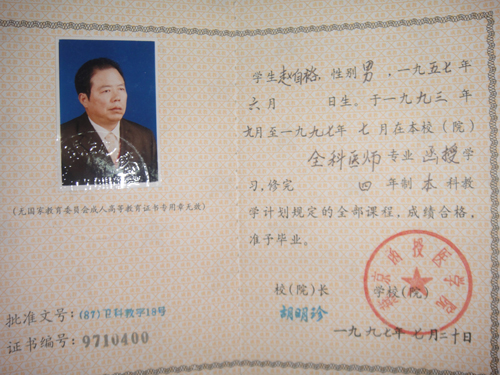 学生赵自 性别男,一九五七年
六月 日生。于一九九三年
九月至一九九七年七月在本校(院)
全科医师专业函授学
习,修完四年制本科教
学计划规定的全部课程,成绩合格,
准予毕业。
(无国家教育委员会成人高等教育证书专用章无效)
校(院)长 学校(院)
胡明珍
京函授医学院
批准文号:(87)卫科教字19号
证书编号:9710400
一九九七年七月二十日